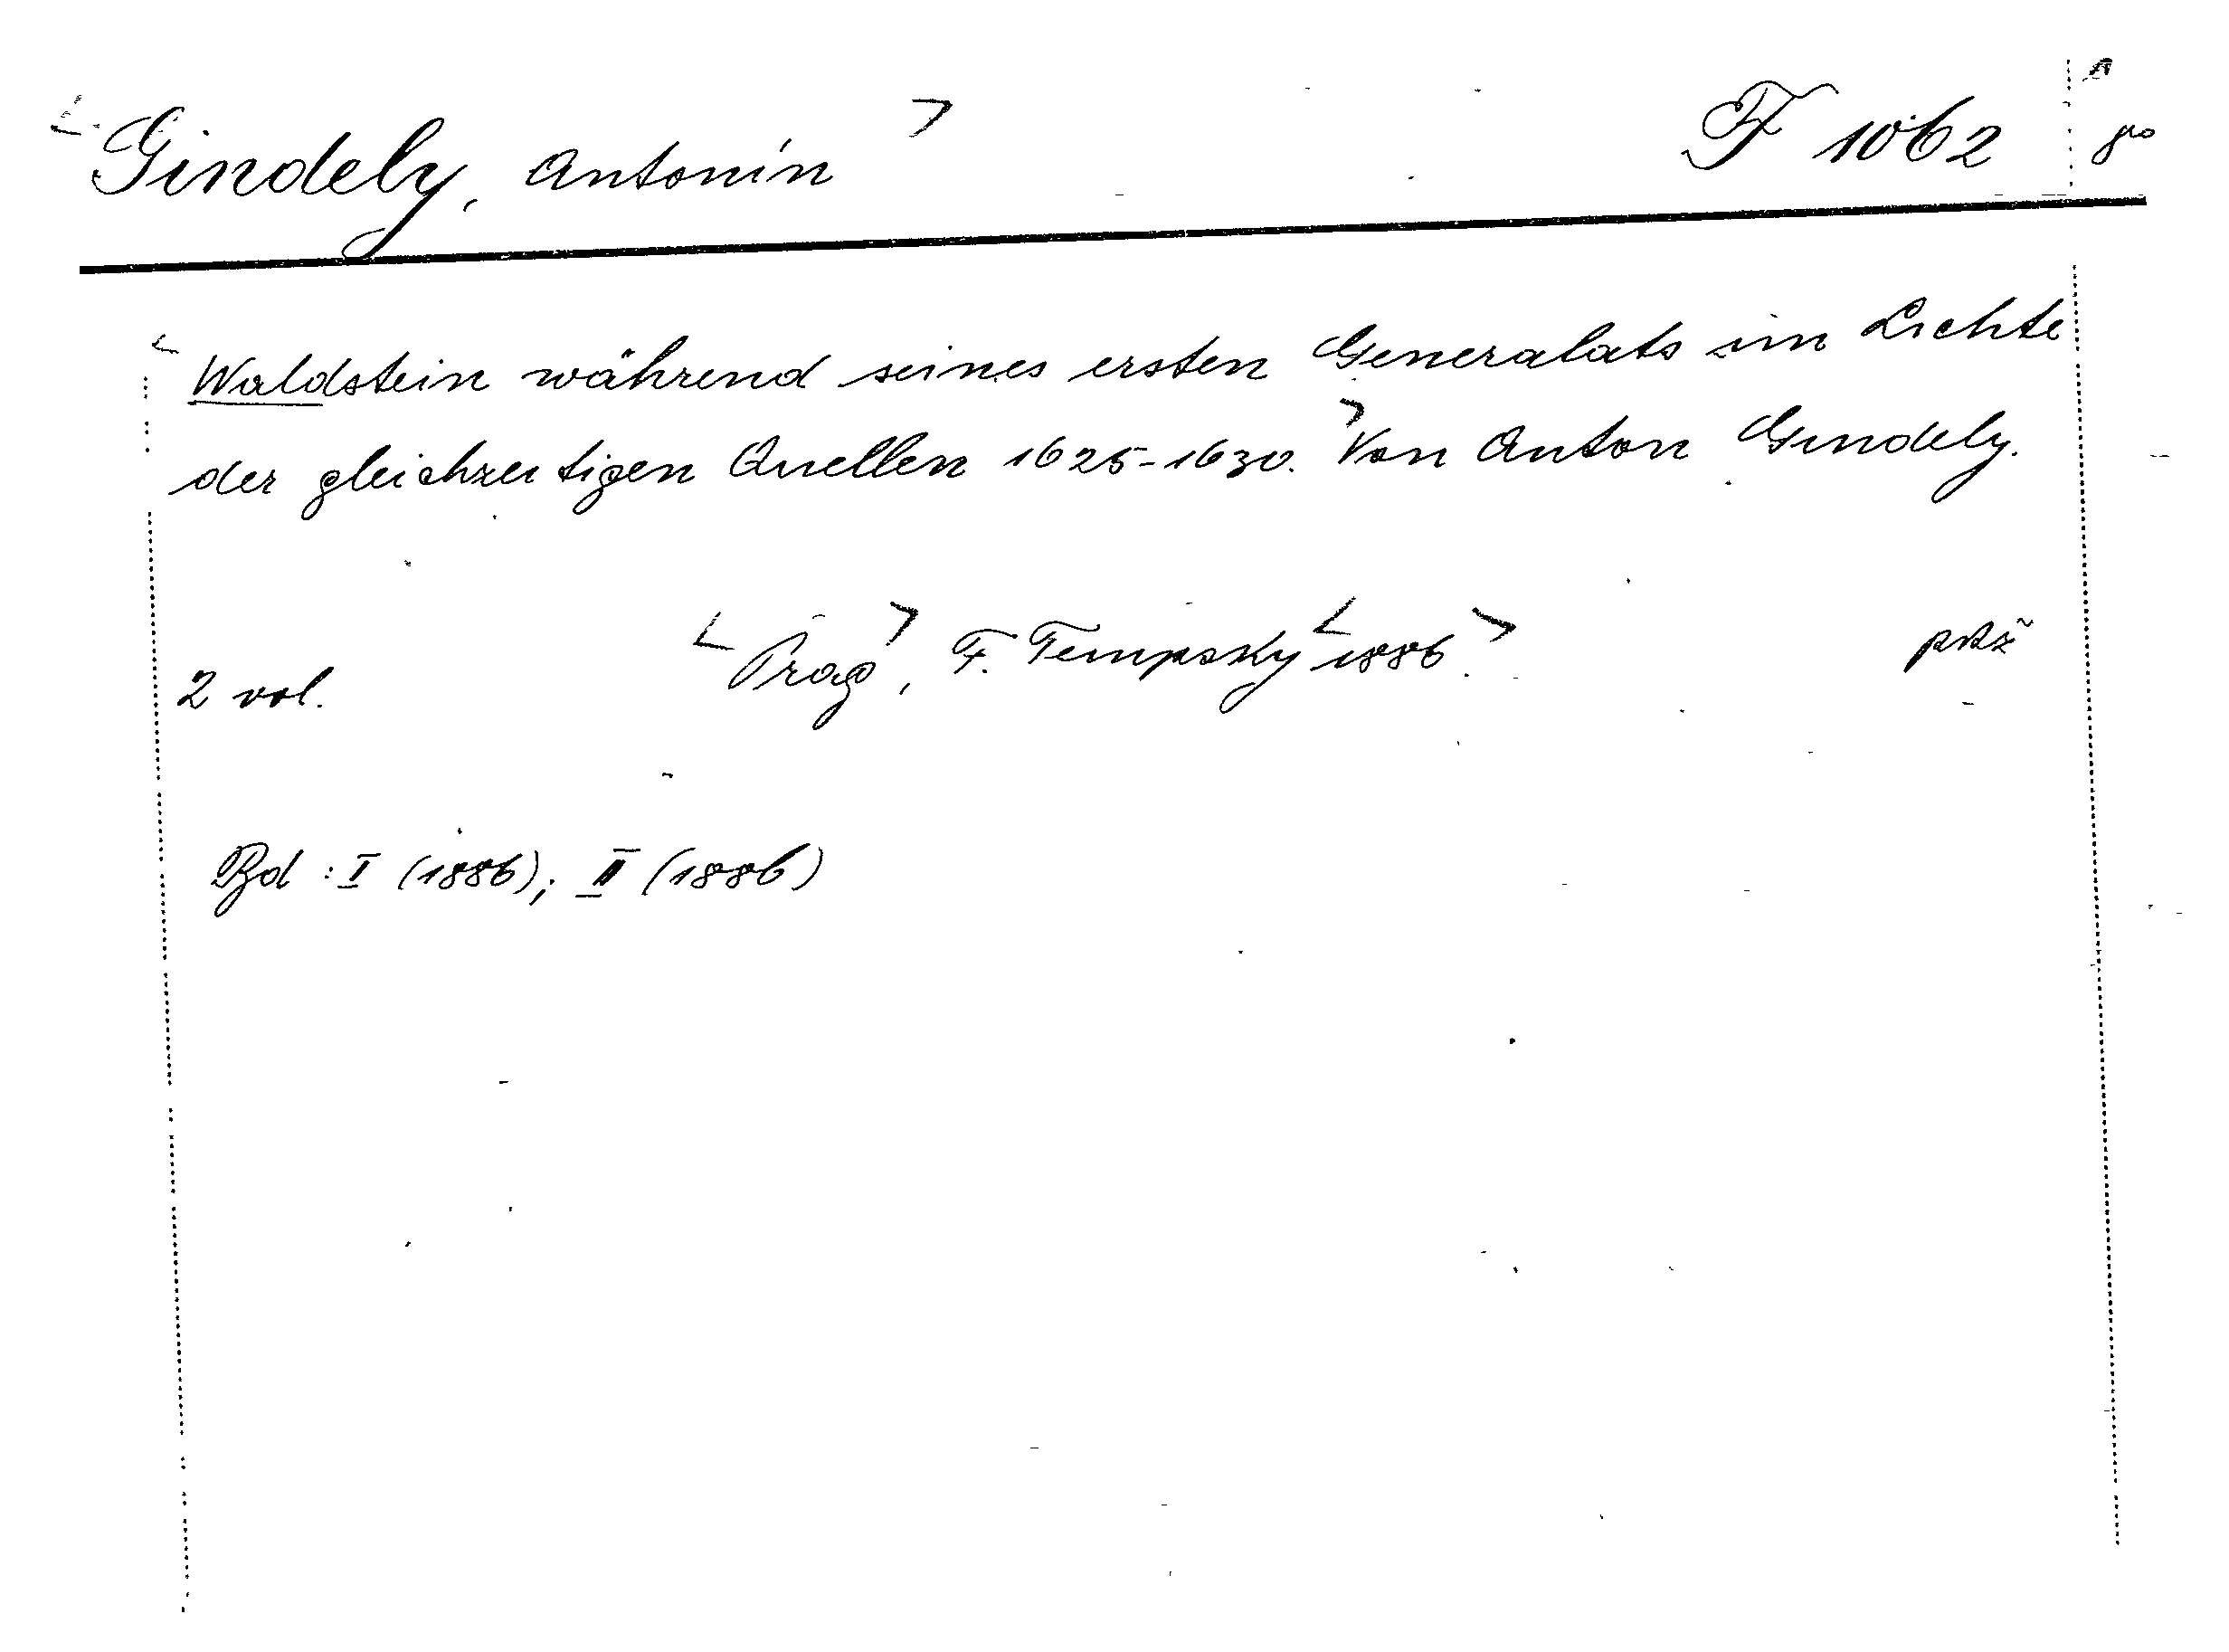 <Gindely, Antonín> F 1062 8°
<Waldstein während seines ersten Generalats im Lichte
der gleichzeitigen Quellen 1625-1630.> Von Anton Gindely.
2 vol. <Prag>, F. Tempsky <1886.>
Bd : I (1886); II (1886)